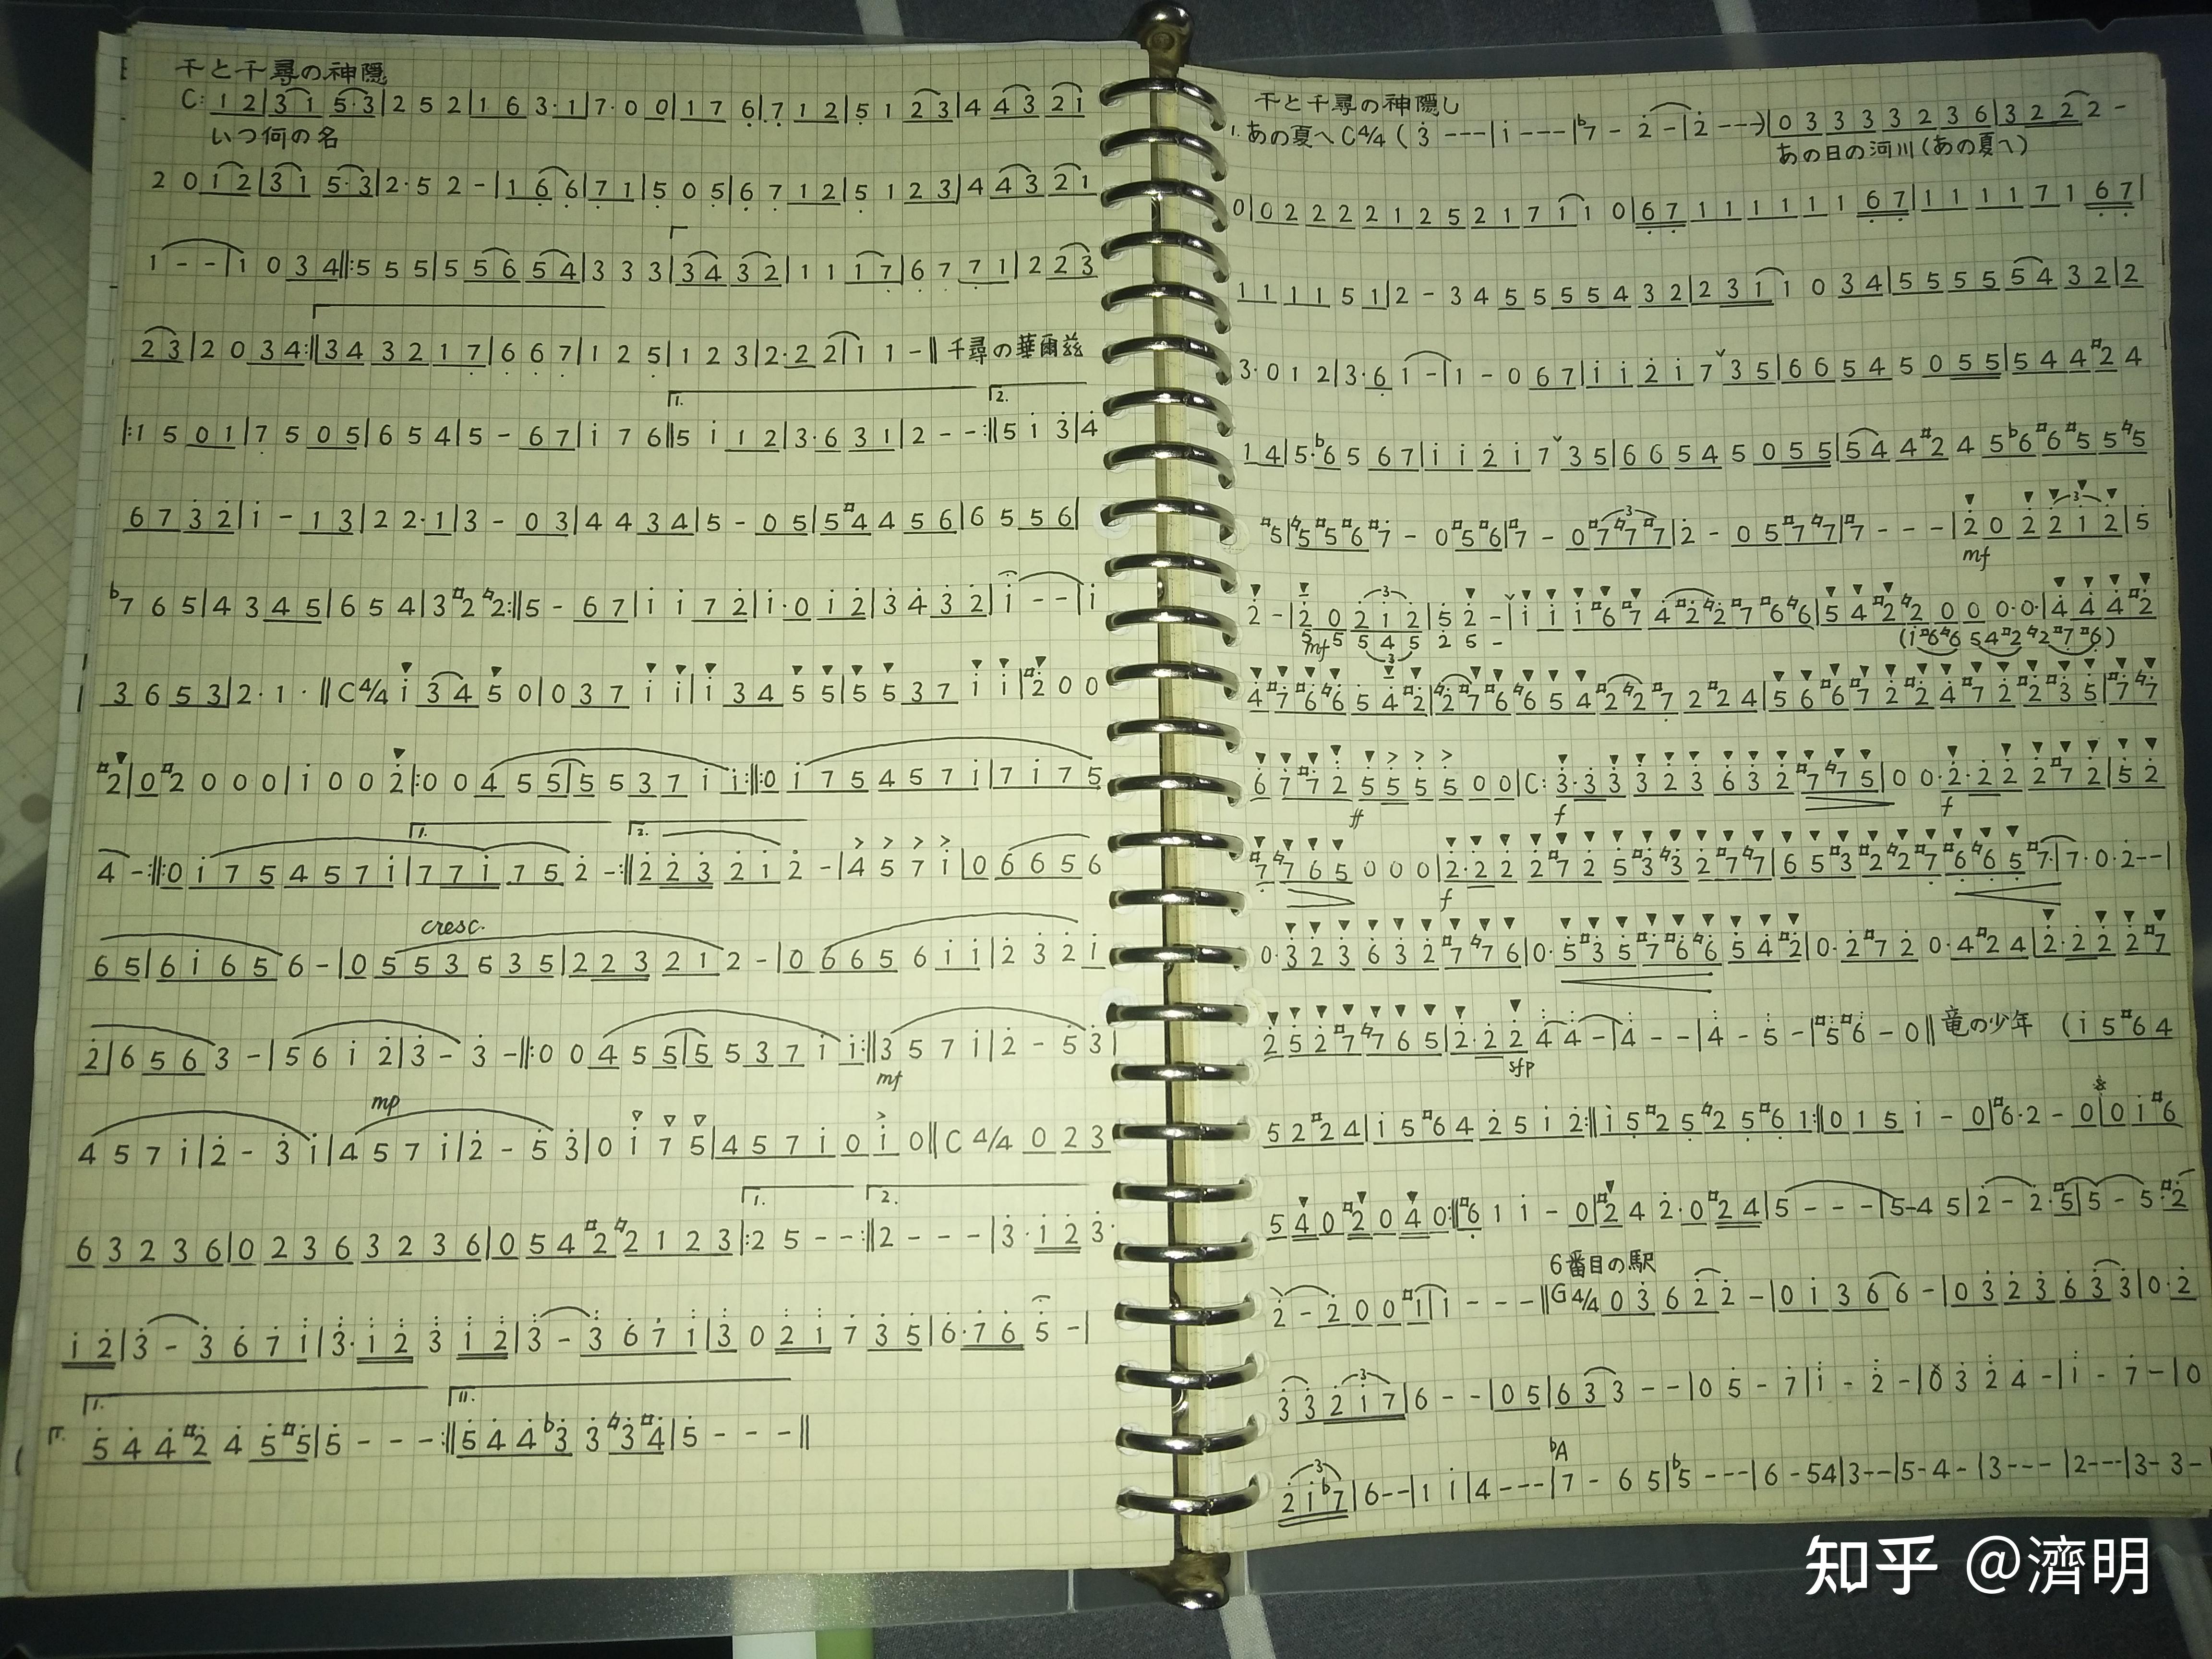 千と千尋の神隠
C: 1 2|3 1 5·3|2 5 2|1 6 3·1|7·0 0|1 7 6|7 1 2|5 1 2 3|4 4 3 2 1
いつ何の名
2 0 1 2|3 1 5·3|2·5 2 -|1 6 6|7 1|5 0 5|6 7 1 2|5 1 2 3|4 4 3 2 1
1 - -|1 0 3 4‖:5 5 5|5 5 6 5 4|3 3 3|3 4 3 2|1 1 1 7|6 7 7 1|2 2 3
2 3|2 0 3 4:‖3 4 3 2 1 7|6 6 7|1 2 5|1 2 3|2·2 2|1 1 -‖ 千尋の華爾兹
1. 2.
|:1 5 0 1|7 5 0 5|6 5 4|5 - 6 7|i 7 6‖5 i 1 2|3·6 3 1|2 - -:‖5 i 3|4
6 7 3 2|i - 1 3|2 2·1|3 - 0 3|4 4 3 4|5 - 0 5|5 #4 4 5 6|6 5 5 6|
b7 6 5|4 3 4 5|6 5 4|3 #2 ♮2:‖5 - 6 7|i i 7 2|i·0 i 2|3 4 3 2|i - -|i
3 6 5 3|2·1 ·‖C4/4 i 3 4 5 0|0 3 7 i i|i 3 4 5 5|5 5 3 7 i i|#2 0 0
#2|0 #2 0 0 0|i 0 0 2|:0 0 4 5 5|5 5 3 7 i i:‖:0 i 7 5 4 5 7 i|7 i 7 5
1. 2.
4 -:‖:0 i 7 5 4 5 7 i|7 7 i 7 5 2 -:‖2 2 3 2 i 2 -|4 5 7 i|0 6 6 5 6
cresc.
6 5|6 i 6 5 6 -|0 5 5 3 5 3 5|2 2 3 2 1 2 -|0 6 6 5 6 i i|2 3 2 i
2|6 5 6 3 -|5 6 i 2|3 - 3 -‖:0 0 4 5 5|5 5 3 7 i i:‖3 5 7 i|2 - 5 3|
mf
mp
4 5 7 i|2 - 3 i|4 5 7 i|2 - 5 3|0 i 7 5|4 5 7 i 0 i 0‖C 4/4 0 2 3
1. 2.
6 3 2 3 6|0 2 3 6 3 2 3 6|0 5 4 #2 ♮2 1 2 3|:2 5 - -:‖2 - - -|3·i 2 3·
i 2|3 - 3 6 7 i|3·i 2 3 i 2|3 - 3 6 7 i|3 0 2 i 7 3 5|6·7 6 5 -|
1. 11.
5 4 4 #2 4 5 #5|5 - - -:‖5 4 4 b3 3 ♮3 #4|5 - - -‖
千と千尋の神隠し
1. あの夏へ C4/4 (3 ---|i ---|b7 - 2 -|2 ---)|0 3 3 3 3 2 3 6|3 2 2 2 -
あの日の河川(あの夏へ)
0|0 2 2 2 2 1 2 5 2 1 7 1 1 0|6 7 1 1 1 1 1 1 6 7|1 1 1 1 7 1 6 7|
1 1 1 1 5 1|2 - 3 4 5 5 5 5 4 3 2|2 3 1 1 0 3 4|5 5 5 5 5 4 3 2|2
3·0 1 2|3·6 1 -|1 - 0 6 7|i i 2 i 7 ˇ3 5|6 6 5 4 5 0 5 5|5 4 4 #2 4
1 4|5·b6 5 6 7|i i 2 i 7 ˇ3 5|6 6 5 4 5 0 5 5|5 4 4 #2 4 5 b6 #6 #5 5 ♮5
#5|♮5 #5 #6 #7 - 0 #5 #6|#7 - 0 #7 ♮7 #7|2 - 0 5 #7 ♮7|#7 - - -|2 0 2 2 1 2|5
mf
2 -|2 0 2 1 2|5 2 -|i i i #6 #7 4 #2 ♮2 #7 #6 ♮6|5 4 #2 ♮2 0 0 0·0·|4 4 4 #2
mf 5 5 5 4 5 2 5 - (i #6 ♮6 5 4 #2 ♮2 #7 #6)
4 #7 #6 ♮6 5 4 #2|♮2 #7 #6 ♮6 5 4 #2 2 #7 2 #2 4|5 6 #6 #7 2 #2 4 #7 2 #2 #3 5|#7 ♮7
6 7 #7 2 5 5 5 5 0 0|C: 3·3 3 3 2 3 6 3 2 #7 ♮7 5|0 0·2·2 2 2 #7 2|5 2
ff f f
#7 ♮7 6 5 0 0 0|2·2 2 2 #7 2 5 #3 ♮3 2 #7 ♮7|6 5 #3 #2 ♮2 #7 #6 ♮6 5 #7·|7·0·2--|
f
0·3 2 3 6 3 2 #7 ♮7 6|0·5 #3 5 #7 #6 ♮6 5 4 #2|0·2 #7 2 0·4 #2 4|2·2 2 2 #7
2 5 2 #7 ♮7 6 5|2·2 2 4 4 -|4 - -|4 - 5 -|#5 #6 - 0‖竜の少年 (i 5 #6 4
sfp
5 2 #2 4|i 5 #6 4 2 5 i 2:‖i 5 #2 5 ♮2 5 #6 1:‖0 1 5 i - 0|#6·2 - 0|0 i #6
5 4 0 #2 0 4 0:‖#6 1 i - 0|#2 4 2·0 #2 4|5 - - -|5-4 5|2 - 2·#5|5 - 5·#2
6番目の駅
2 - 2 0 0 #1|i - - -‖G4/4 0 3 6 2 2 -|0 i 3 6 6 -|0 3 2 3 6 3 3|0·2
3 3 2 i 7|6 - -|0 5|6 3 3 - -|0 5 - 7|i - 2 -|0 3 2 4 -|i - 7 -|0
bA
2 i b7|6--|1 i|4---|7 - 6 5|b5 ---|6 -54|3--|5-4-|3---|2---|3- 3-
知乎 @濟明